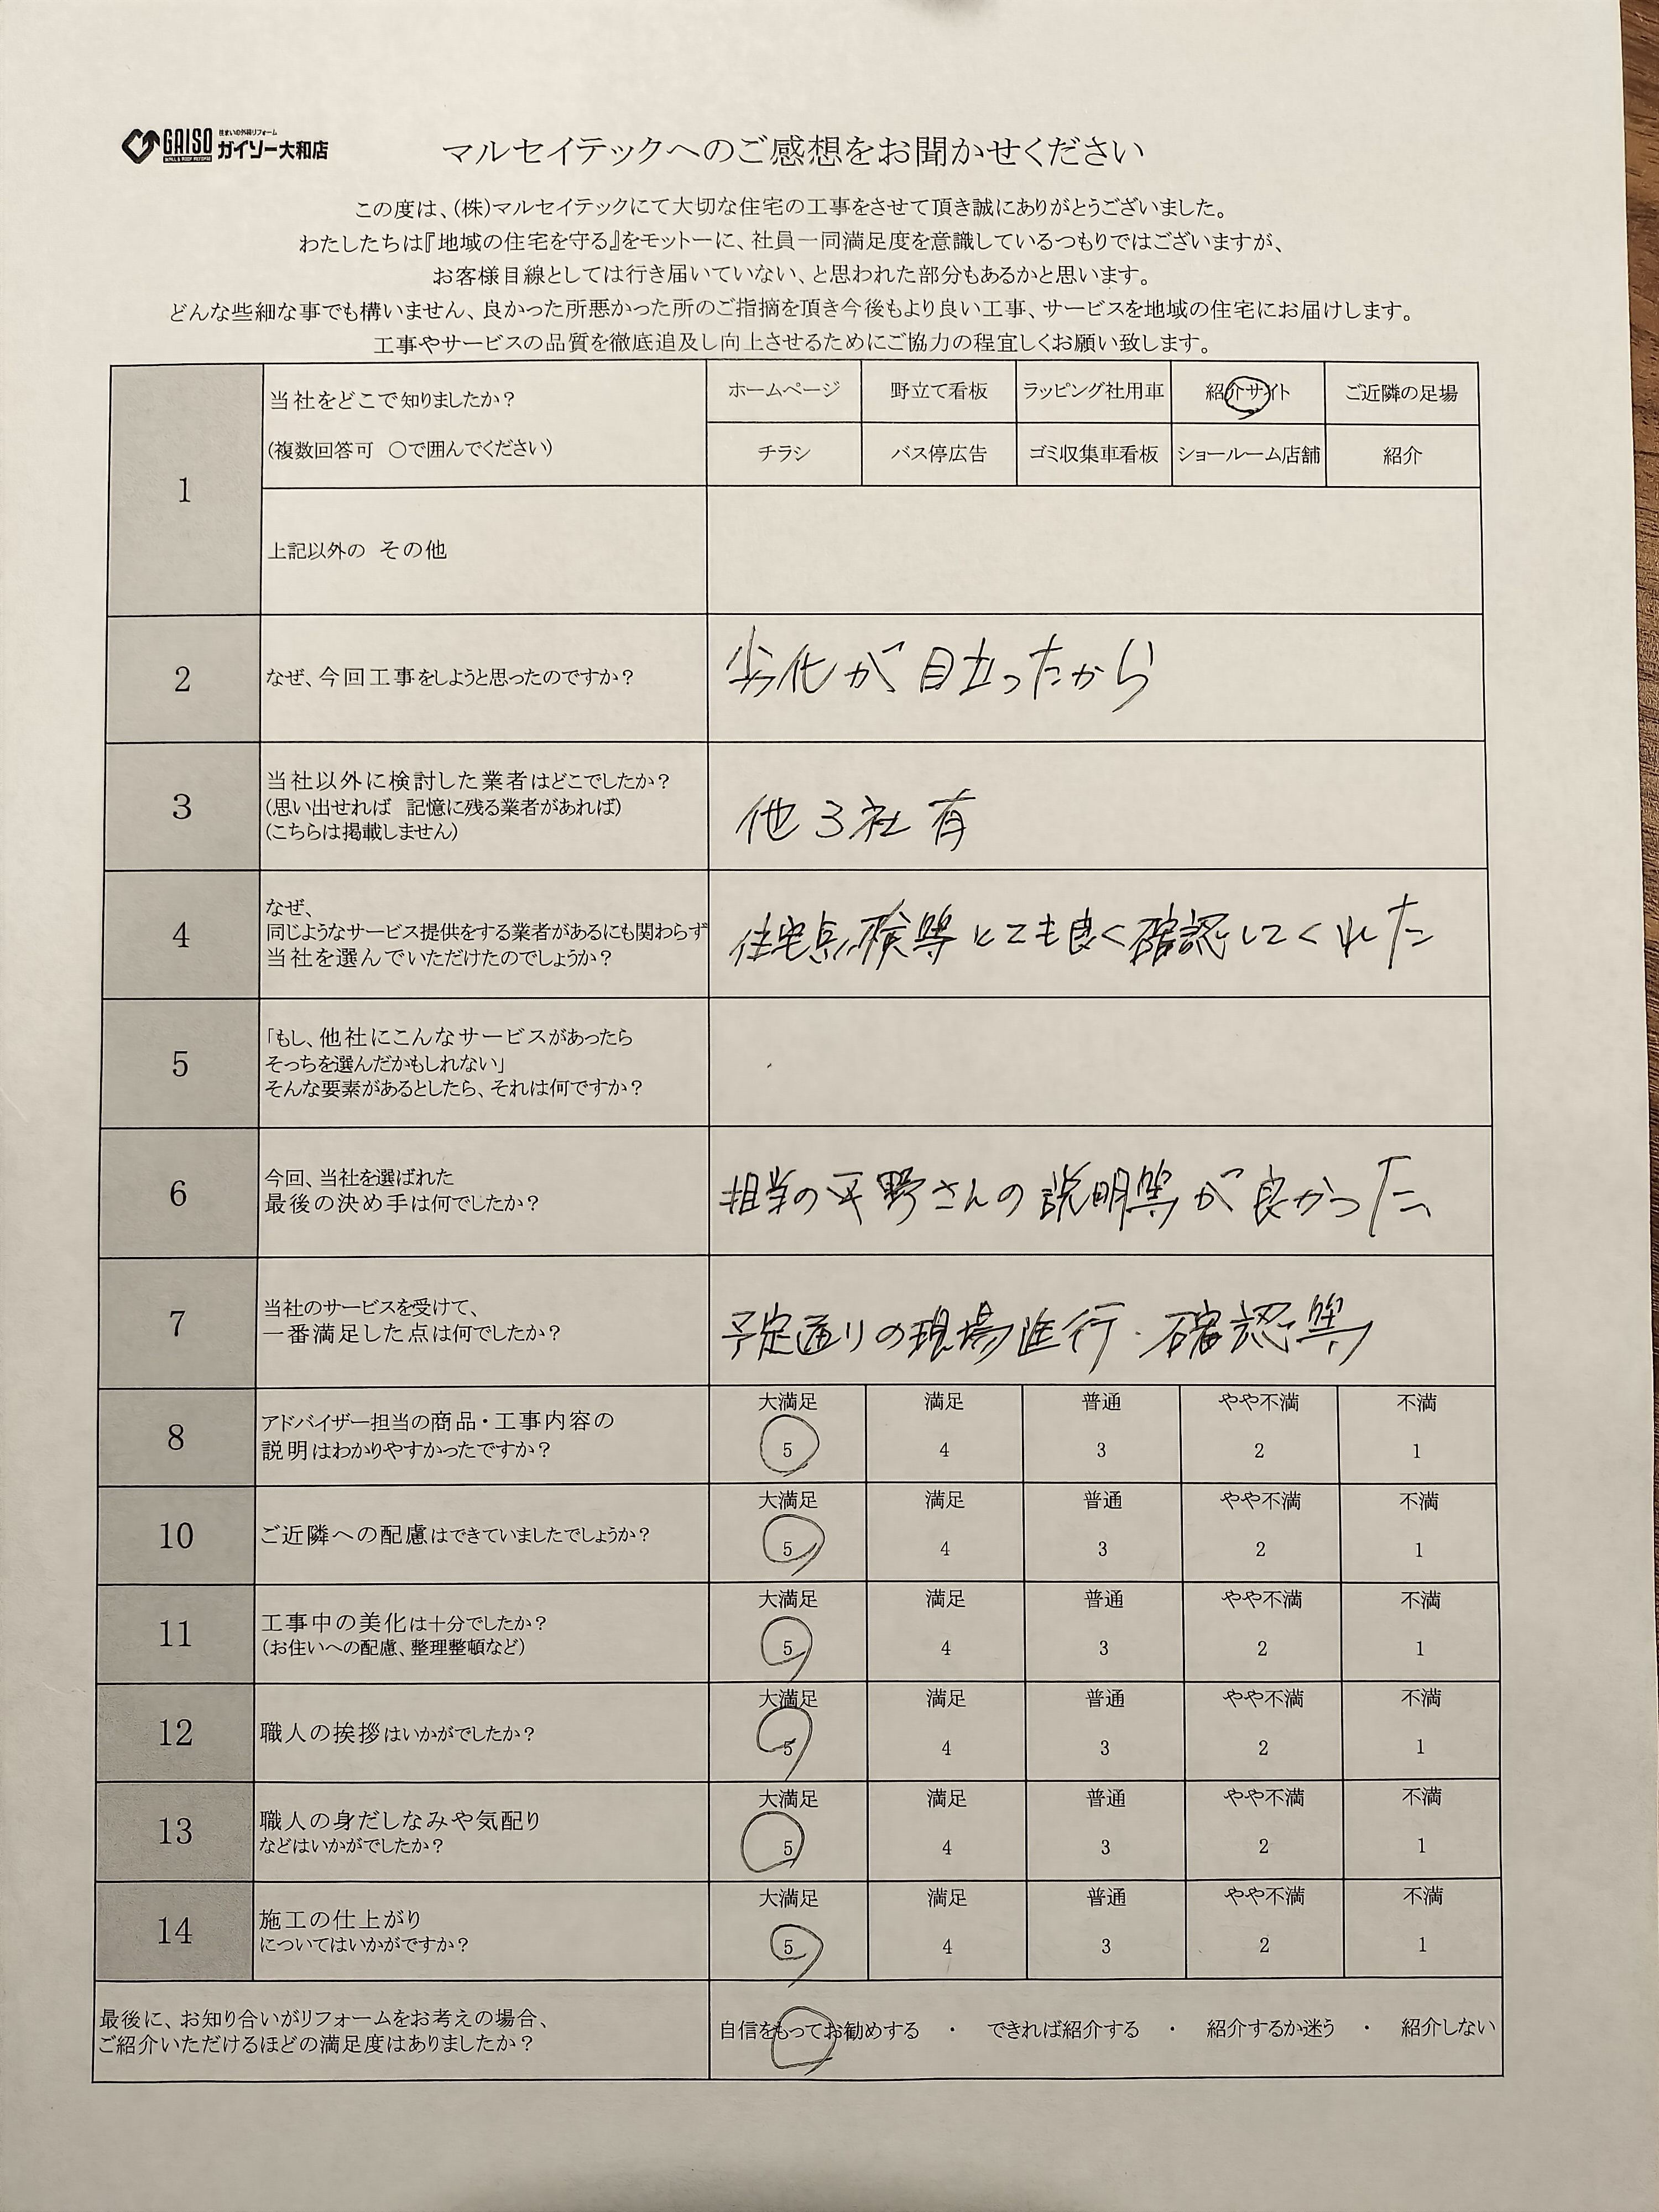 GAISO
WALL & ROOF REFORM
住まいの外装リフォーム
ガイソー大和店
マルセイテックへのご感想をお聞かせください
この度は、(株)マルセイテックにて大切な住宅の工事をさせて頂き誠にありがとうございました。
わたしたちは『地域の住宅を守る』をモットーに、社員一同満足度を意識しているつもりではございますが、
お客様目線としては行き届いていない、と思われた部分もあるかと思います。
どんな些細な事でも構いません、良かった所悪かった所のご指摘を頂き今後もより良い工事、サービスを地域の住宅にお届けします。
工事やサービスの品質を徹底追及し向上させるためにご協力の程宜しくお願い致します。
1
当社をどこで知りましたか?
(複数回答可 ○で囲んでください)
ホームページ 野立て看板 ラッピング社用車 紹介サイト ご近隣の足場
チラシ バス停広告 ゴミ収集車看板 ショールーム店舗 紹介
上記以外の その他
2
なぜ、今回工事をしようと思ったのですか?
劣化が目立ったから
3
当社以外に検討した業者はどこでしたか?
(思い出せれば 記憶に残る業者があれば)
(こちらは掲載しません)
他3社有
4
なぜ、
同じようなサービス提供をする業者があるにも関わらず
当社を選んでいただけたのでしょうか?
住宅点検等とても良く確認してくれた
5
「もし、他社にこんなサービスがあったら
そっちを選んだかもしれない」
そんな要素があるとしたら、それは何ですか?
6
今回、当社を選ばれた
最後の決め手は何でしたか?
担当の平野さんの説明等が良かった
7
当社のサービスを受けて、
一番満足した点は何でしたか?
予定通りの現場進行・確認等
8
アドバイザー担当の商品・工事内容の
説明はわかりやすかったですか?
大満足 満足 普通 やや不満 不満
5 4 3 2 1
10
ご近隣への配慮はできていましたでしょうか?
大満足 満足 普通 やや不満 不満
5 4 3 2 1
11
工事中の美化は十分でしたか?
(お住いへの配慮、整理整頓など)
大満足 満足 普通 やや不満 不満
5 4 3 2 1
12
職人の挨拶はいかがでしたか?
大満足 満足 普通 やや不満 不満
5 4 3 2 1
13
職人の身だしなみや気配り
などはいかがでしたか?
大満足 満足 普通 やや不満 不満
5 4 3 2 1
14
施工の仕上がり
についてはいかがですか?
大満足 満足 普通 やや不満 不満
5 4 3 2 1
最後に、お知り合いがリフォームをお考えの場合、
ご紹介いただけるほどの満足度はありましたか?
自信をもってお勧めする ・ できれば紹介する ・ 紹介するか迷う ・ 紹介しない